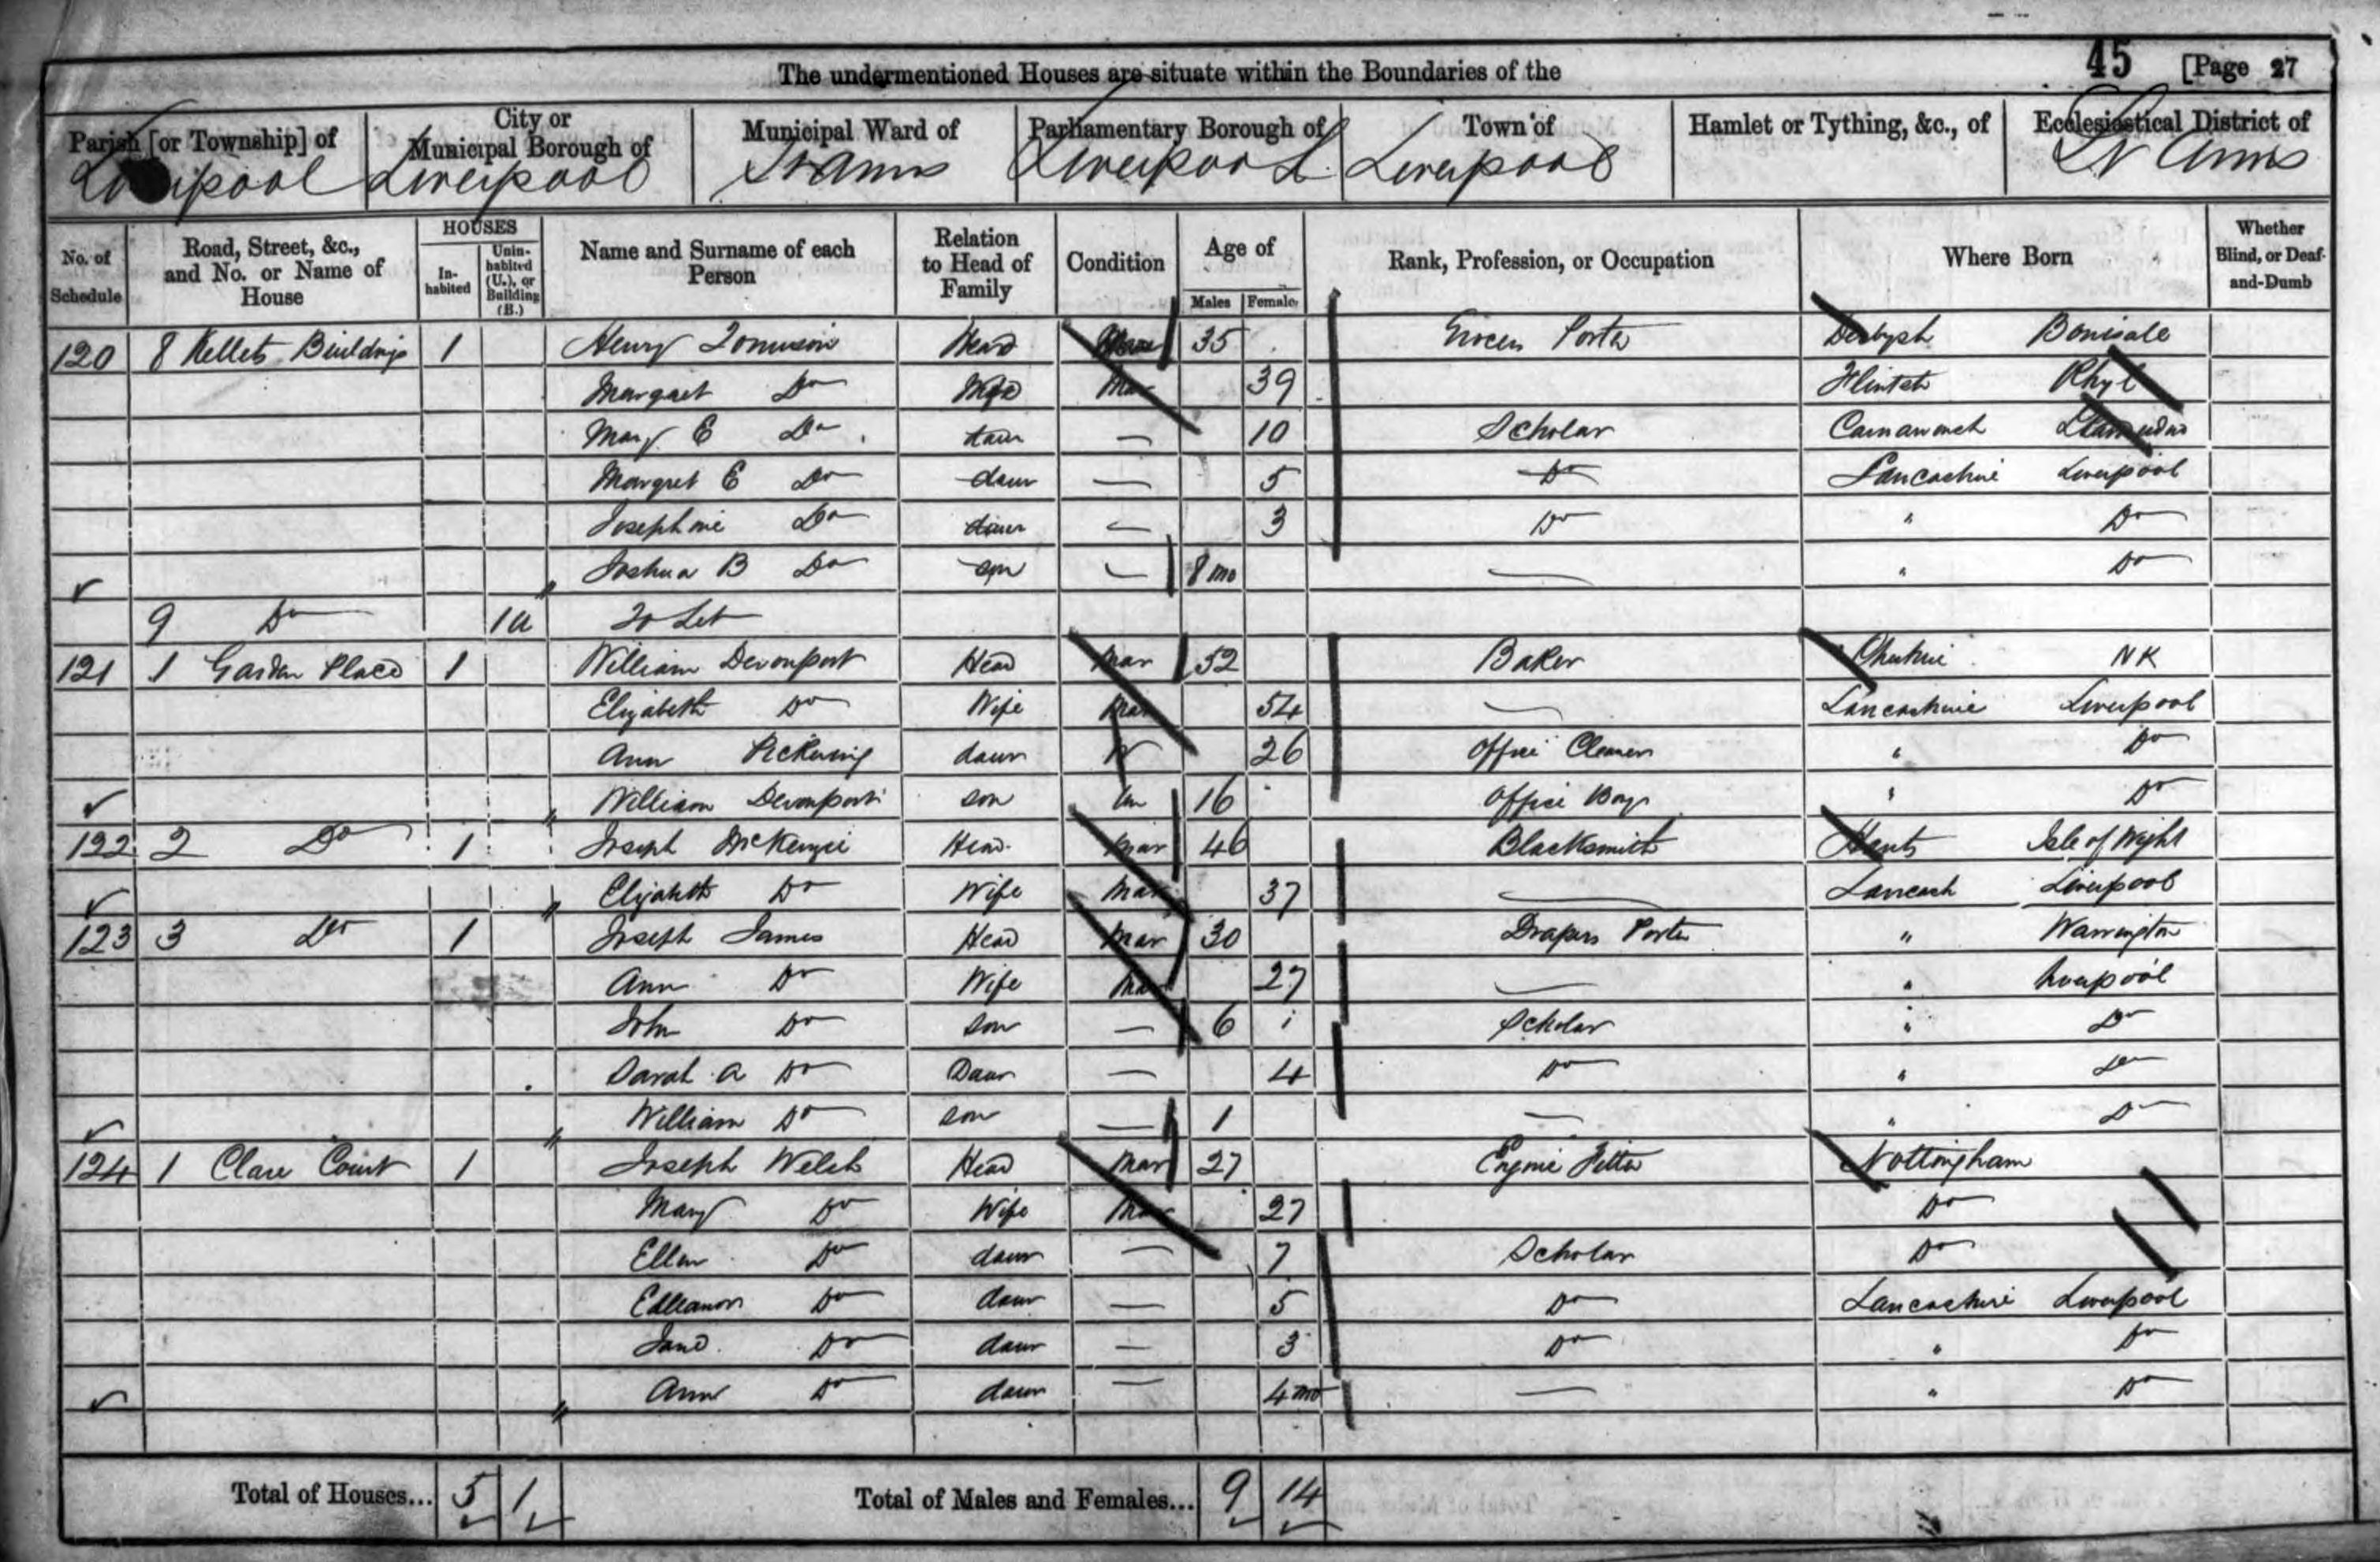 The undermentioned Houses are situate within the Boundaries of the 45 [Page 27
Parish [or Township] of City or Municipal Borough of Municipal Ward of Parliamentary Borough of Town of Hamlet or Tything, &c., of Ecclesiastical District of
Liverpool Liverpool St Anns Liverpool Liverpool St Anns
No. of Schedule Road, Street, &c., and No. or Name of House HOUSES Inhabited Uninhabited (U.), or Building (B.) Name and Surname of each Person Relation to Head of Family Condition Age of Males Females Rank, Profession, or Occupation Where Born Whether Blind, or Deaf-and-Dumb
120 8 Kellets Buildings 1 Henry Head Mar 35 Porter Derbysh
Margaret Do Wife Mar 39 Flintsh Rhyl
Mary E Do daur — 10 Scholar Llandudno
Margret E Do daur — 5 Do Lancashire Liverpool
Josephine Do daur — 3 Do " Do
Joshua B Do son — 8 mo — " Do
9 Do 1 U To Let
121 1 Garden Place 1 William Devonport Head Mar 52 Baker Cheshire NK
Elizabeth Do Wife Mar 54 — Lancashire Liverpool
Ann Pickering daur W 26 Office Cleaner " Do
William Devonport son Un 16 Office Boy " Do
122 2 Do 1 Joseph McKenzie Head Mar 46 Blacksmith Hants Isle of Wight
Elizabeth Do Wife Mar 37 — Lancash Liverpool
123 3 Do 1 Joseph James Head Mar 30 Drapers Porter " Warrington
Ann Do Wife Mar 27 — " Liverpool
John Do son — 6 Scholar " Do
Sarah A Do Daur — 4 Do " Do
William Do son — 1 — " Do
124 1 Clare Court 1 Joseph Welch Head Mar 27 Engine Fitter Nottingham
Mary Do Wife Mar 27 Do
Ellen Do daur — 7 Scholar Do
Do daur — 5 Do Lancashire Liverpool
Jane Do daur — 3 Do " Do
Ann Do daur — 4 mo — " Do
Total of Houses... 5 1 Total of Males and Females... 9 14